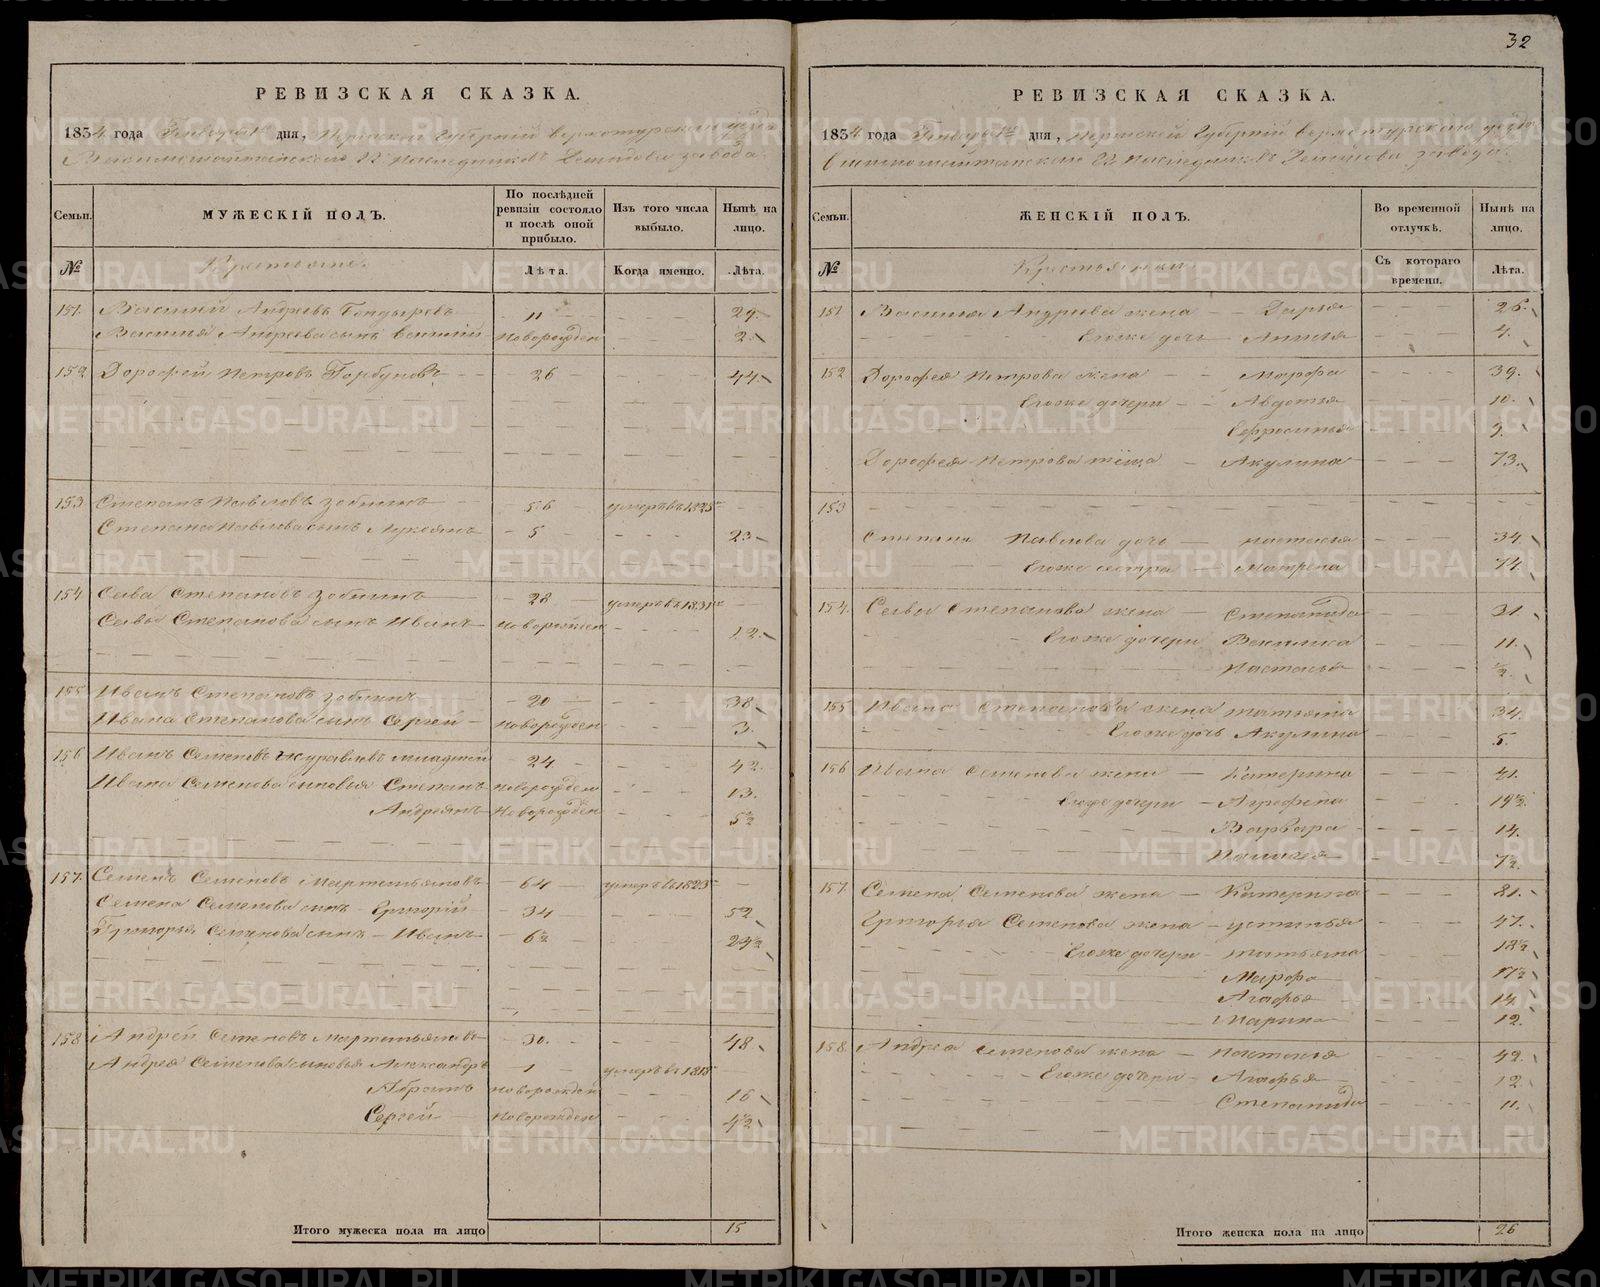 32
РЕВИЗСКАЯ СКАЗКА.
1834 года Генваря дня, Пермской Губернии верхотурского уезда
наследниковъ Демидова завода.
Семьи. МУЖЕСКІЙ ПОЛЪ. По послѣдней ревизіи состояло и послѣ оной прибыло. Изъ того числа выбыло. Нынѣ на лицо.
№ Крестьяне. Лѣта. Когда именно. Лѣта.
151. Василий Андреевъ 11 29.
Василья Андреева сынъ Новорожден 2.
152 Дорофей Петровъ Горбуновъ 26 44.
153 Степанъ Павловъ Зобнинъ 56 умеръ въ 1825
Степана Павлова сынъ Лукоянъ 5 23
154 Сава Степановъ Зобнинъ 28 умеръ въ 1831
Савы Степанова сынъ Иванъ Новорожден 12.
155 Иванъ Степановъ Зобнинъ 20 38.
Ивана Степанова сынъ Сергей Новорожден 3.
156 Иванъ Семеновъ Журавлевъ младший 24 42.
Ивана Семенова сыновья Степанъ Новорожден 13.
Андреянъ Новорожден 5½
157. Семенъ Семеновъ Мартемьяновъ 64 умеръ въ 1825
Семена Семенова сынъ Григорій 34 52
Григорья Семенова сынъ Иванъ 6½ 24½
158 Андрей Семеновъ Мартемьяновъ 30. 48.
Андрея Семенова сыновья Александръ 1 умеръ въ 1818
Абрамъ Новорожден 16
Сергей Новорожден 4½
Итого мужеска пола на лицо 15
РЕВИЗСКАЯ СКАЗКА.
1834 года Генваря дня, Пермской Губернии верхотурского уезда
наследниковъ Демидова завода.
Семьи. ЖЕНСКІЙ ПОЛЪ. Во временной отлучкѣ. Нынѣ на лицо.
№ Крестьянки Съ котораго времени. Лѣта.
151 Василья Андреева жена Дарья 26.
Егоже дочь Анисья 4.
152 Дорофея Петрова жена Марфа 39.
Егоже дочери Авдотья 10.
Ефросинья 9.
Дорофея Петрова тёща Акулина 73.
153
Степана Павлова дочь Настасья 34.
Егоже сестра Матрена 74.
154. Савы Степанова жена Степанида 31.
Егоже дочери 11.
Настасья ½.
155 Ивана Степанова жена Татьяна 34.
Егоже дочь Акулина 5.
156 Ивана Семенова жена Катерина 41.
Егоже дочери Агрофена 19½.
Варвара 14.
7½.
157. Семена Семенова жена Катерина 81.
Григорья Семенова жена Устинья 47.
Егоже дочери Татьяна 18½
Марфа 17½
Агафья 14.
Марина 12.
158. Андрея Семенова жена Настасья 42.
Егоже дочери Агафья 12.
Степанида 11.
Итого женска пола на лицо 26
METRIKI.GASO-URAL.RU